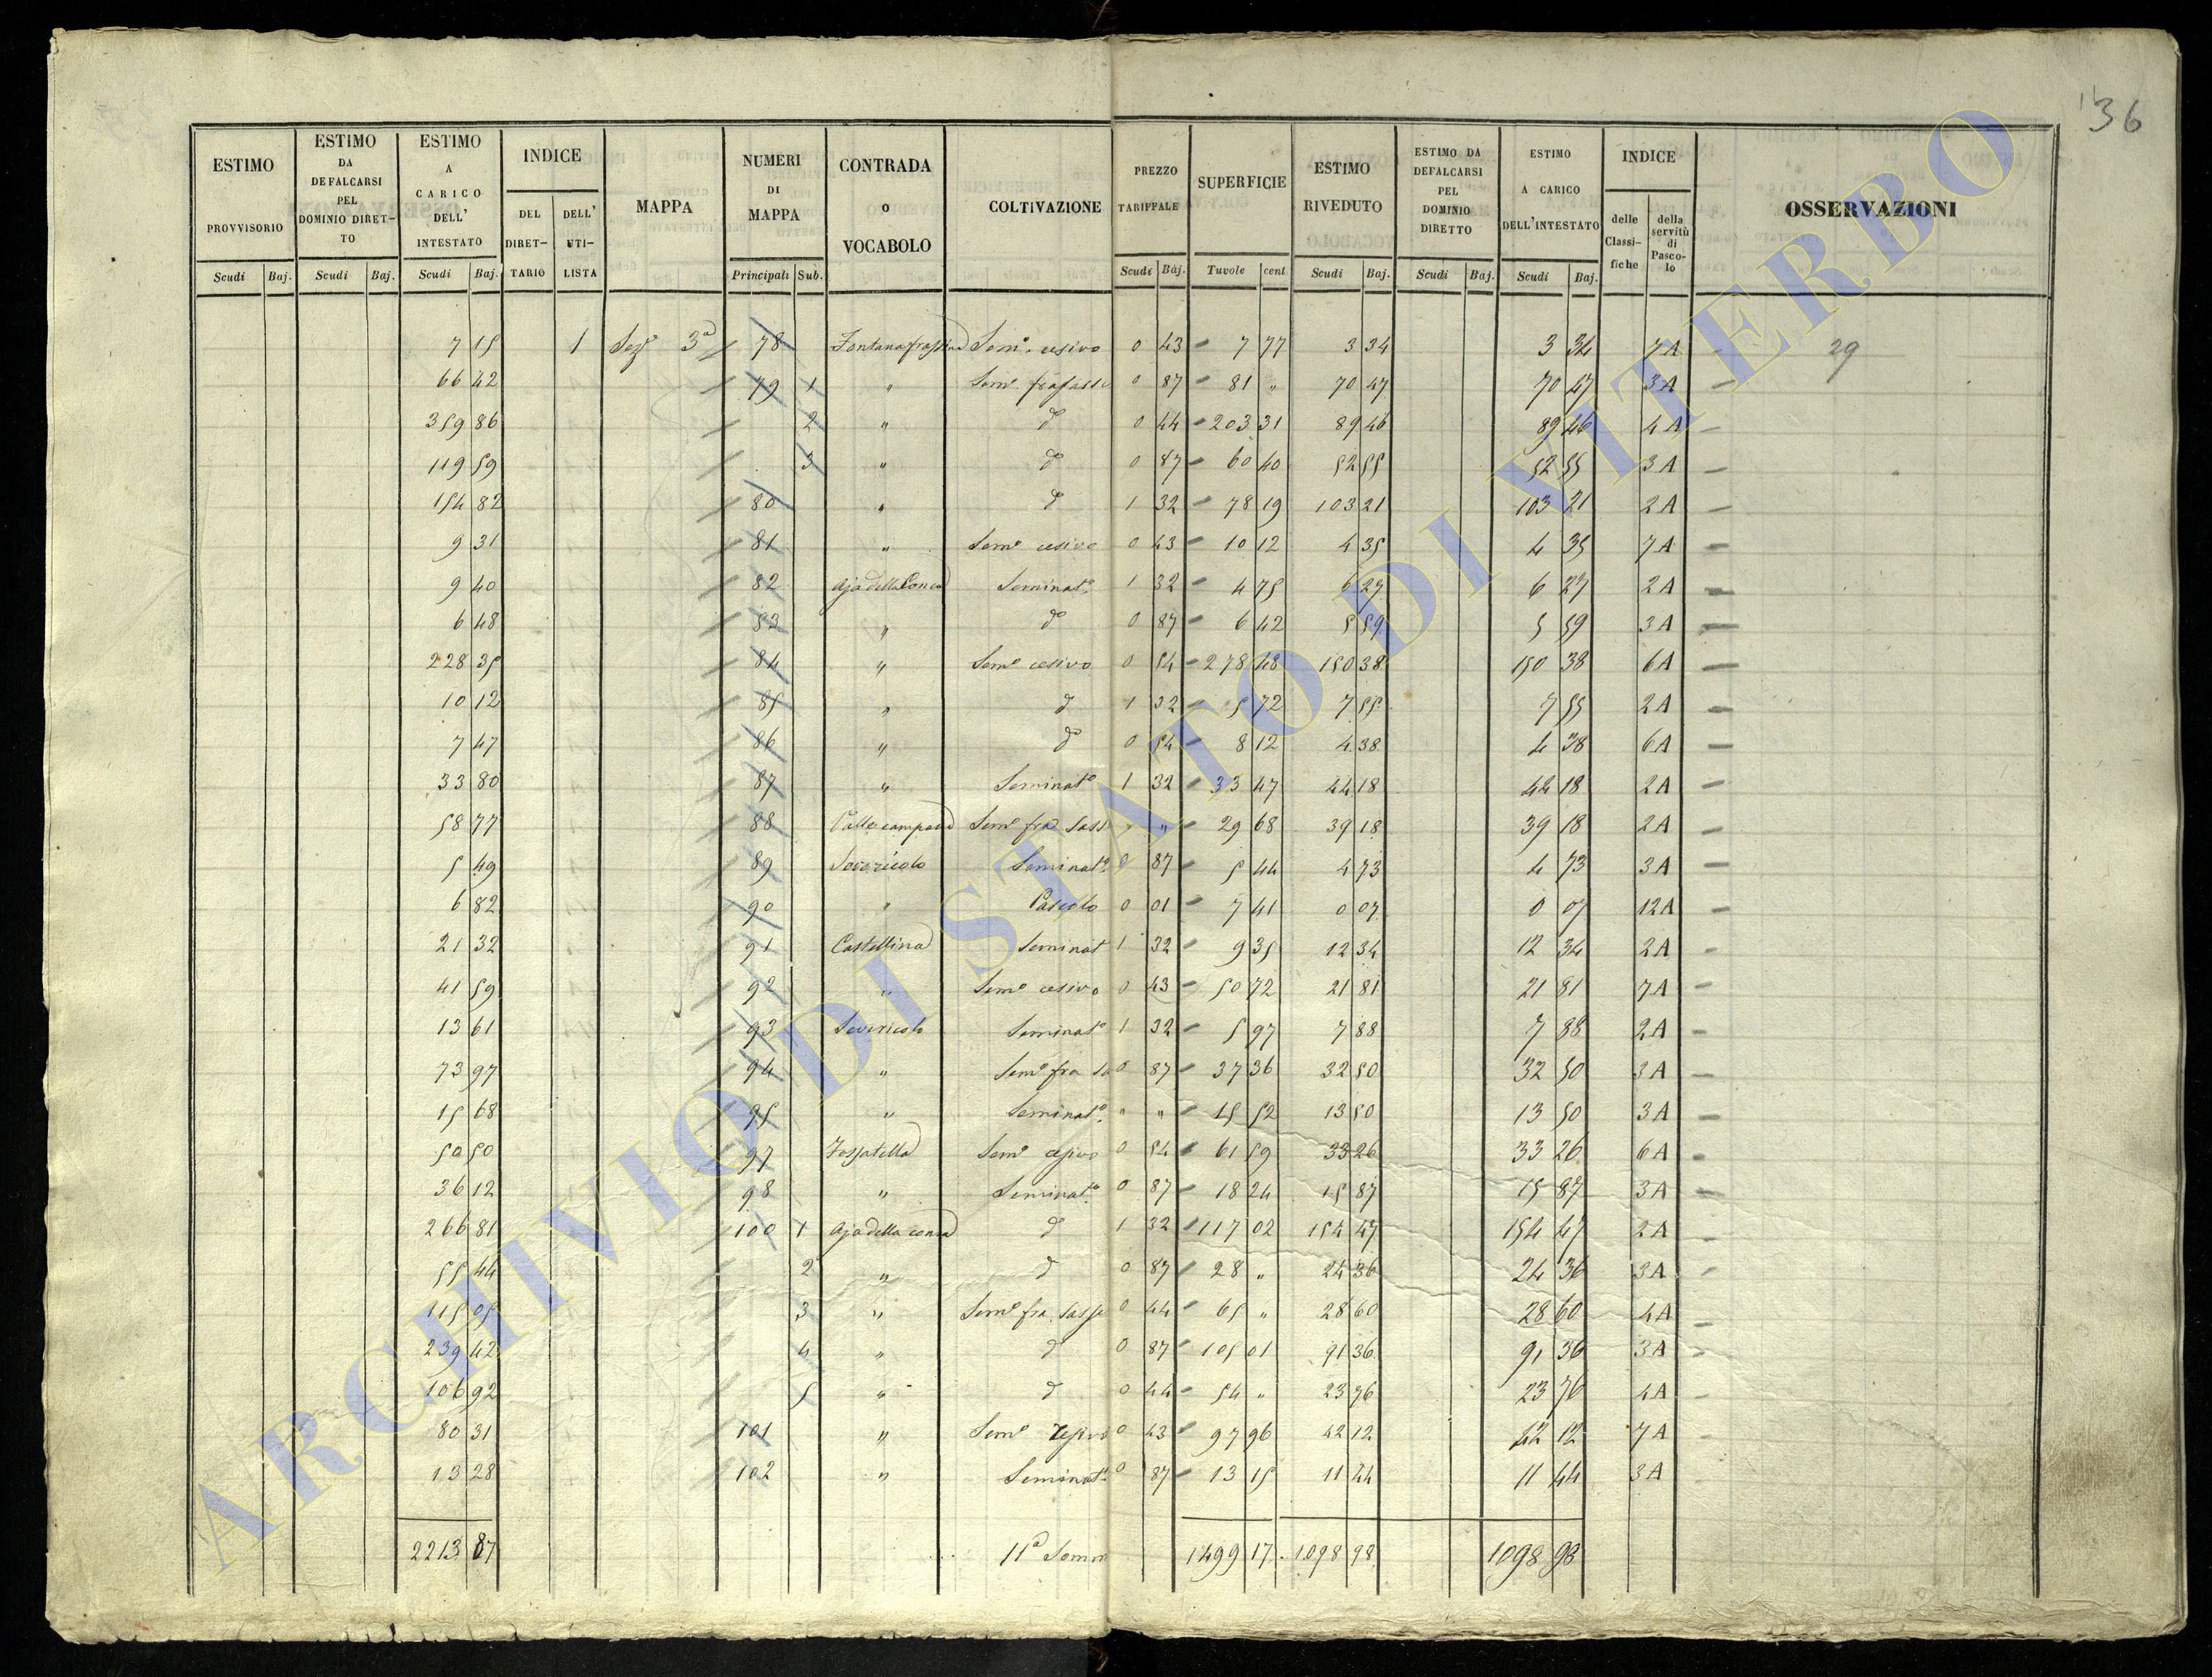 36
ESTIMO PROVVISORIO Scudi Baj.
ESTIMO DA DEFALCARSI PEL DOMINIO DIRET-TO Scudi Baj.
ESTIMO A CARICO DELL' INTESTATO Scudi Baj.
INDICE DEL DIRET-TARIO DELL' UTI-LISTA
MAPPA
NUMERI DI MAPPA Principali Sub.
CONTRADA O VOCABOLO
COLTIVAZIONE
PREZZO TARIFFALE Scudi Baj.
SUPERFICIE Tavole cent
ESTIMO RIVEDUTO Scudi Baj.
ESTIMO DA DEFALCARSI PEL DOMINIO DIRETTO Scudi Baj.
ESTIMO A CARICO DELL'INTESTATO Scudi Baj.
INDICE delle Classi-fiche della servitù di Pasco-lo
OSSERVAZIONI
7 15 1 Sezᵉ 3ª 78 Semᵒ cesivo 0 43 7 77 3 34 3 34 7A 29
66 42 79 1 " 0 87 81 " 70 47 70 47 3A
359 86 2 " dᵒ 0 44 203 31 89 46 89 46 4A
119 59 3 " dᵒ 0 87 60 40 52 55 52 55 3A
154 82 80 " dᵒ 1 32 78 19 103 21 103 21 2A
9 31 81 " Semᵒ cesivo 0 43 10 12 4 35 4 35 7A
9 40 82 Aja della Conca Seminatᵒ 1 32 4 75 6 27 6 27 2A
6 48 83 " dᵒ 0 87 6 42 5 59 5 59 3A
228 35 84 " Semᵒ cesivo 0 54 278 48 150 38 150 38 6A
10 12 85 " d 1 32 5 72 7 55 7 55 2A
7 47 86 " dᵒ 0 54 8 12 4 38 4 38 6A
33 80 87 " Seminatᵒ 1 32 33 47 44 18 44 18 2A
58 77 88 Semᵒ fra Sass " " 29 68 39 18 39 18 2A
5 49 89 Seminatᵒ 0 87 5 44 4 73 4 73 3A
6 82 90 " Pascolo 0 01 7 41 0 07 0 07 12A
21 32 91 Castellina Seminat 1 32 9 35 12 34 12 34 2A
41 59 92 " Semᵒ cesivo 0 43 50 72 21 81 21 81 7A
13 61 93 Seminatᵒ 1 32 5 97 7 88 7 88 2A
73 97 94 " Semᵒ fra sa 0 87 37 36 32 50 32 50 3A
15 68 95 " Seminatᵒ " " 15 52 13 50 13 50 3A
50 50 97 Fossatella Semᵒ cesivo 0 54 61 59 33 26 33 26 6A
36 12 98 " Seminatᵒ 0 87 18 24 15 87 15 87 3A
266 81 100 1 Aja della conca d 1 32 117 02 154 47 154 47 2A
55 44 2 " d 0 87 28 " 24 36 24 36 3A
115 05 3 " Semᵒ fra Sasse 0 44 65 " 28 60 28 60 4A
239 42 4 " d 0 87 105 01 91 36 91 36 3A
106 92 5 " d 0 44 54 " 23 76 23 76 4A
80 31 101 " Semᵒ cesivo 0 43 97 96 42 12 42 12 7A
13 28 102 " Seminatᵒ 0 87 13 15 11 44 11 44 3A
2213 87 11ª Somm 1499 17 1098 98 1098 98
ARCHIVIO DI STATO DI VITERBO